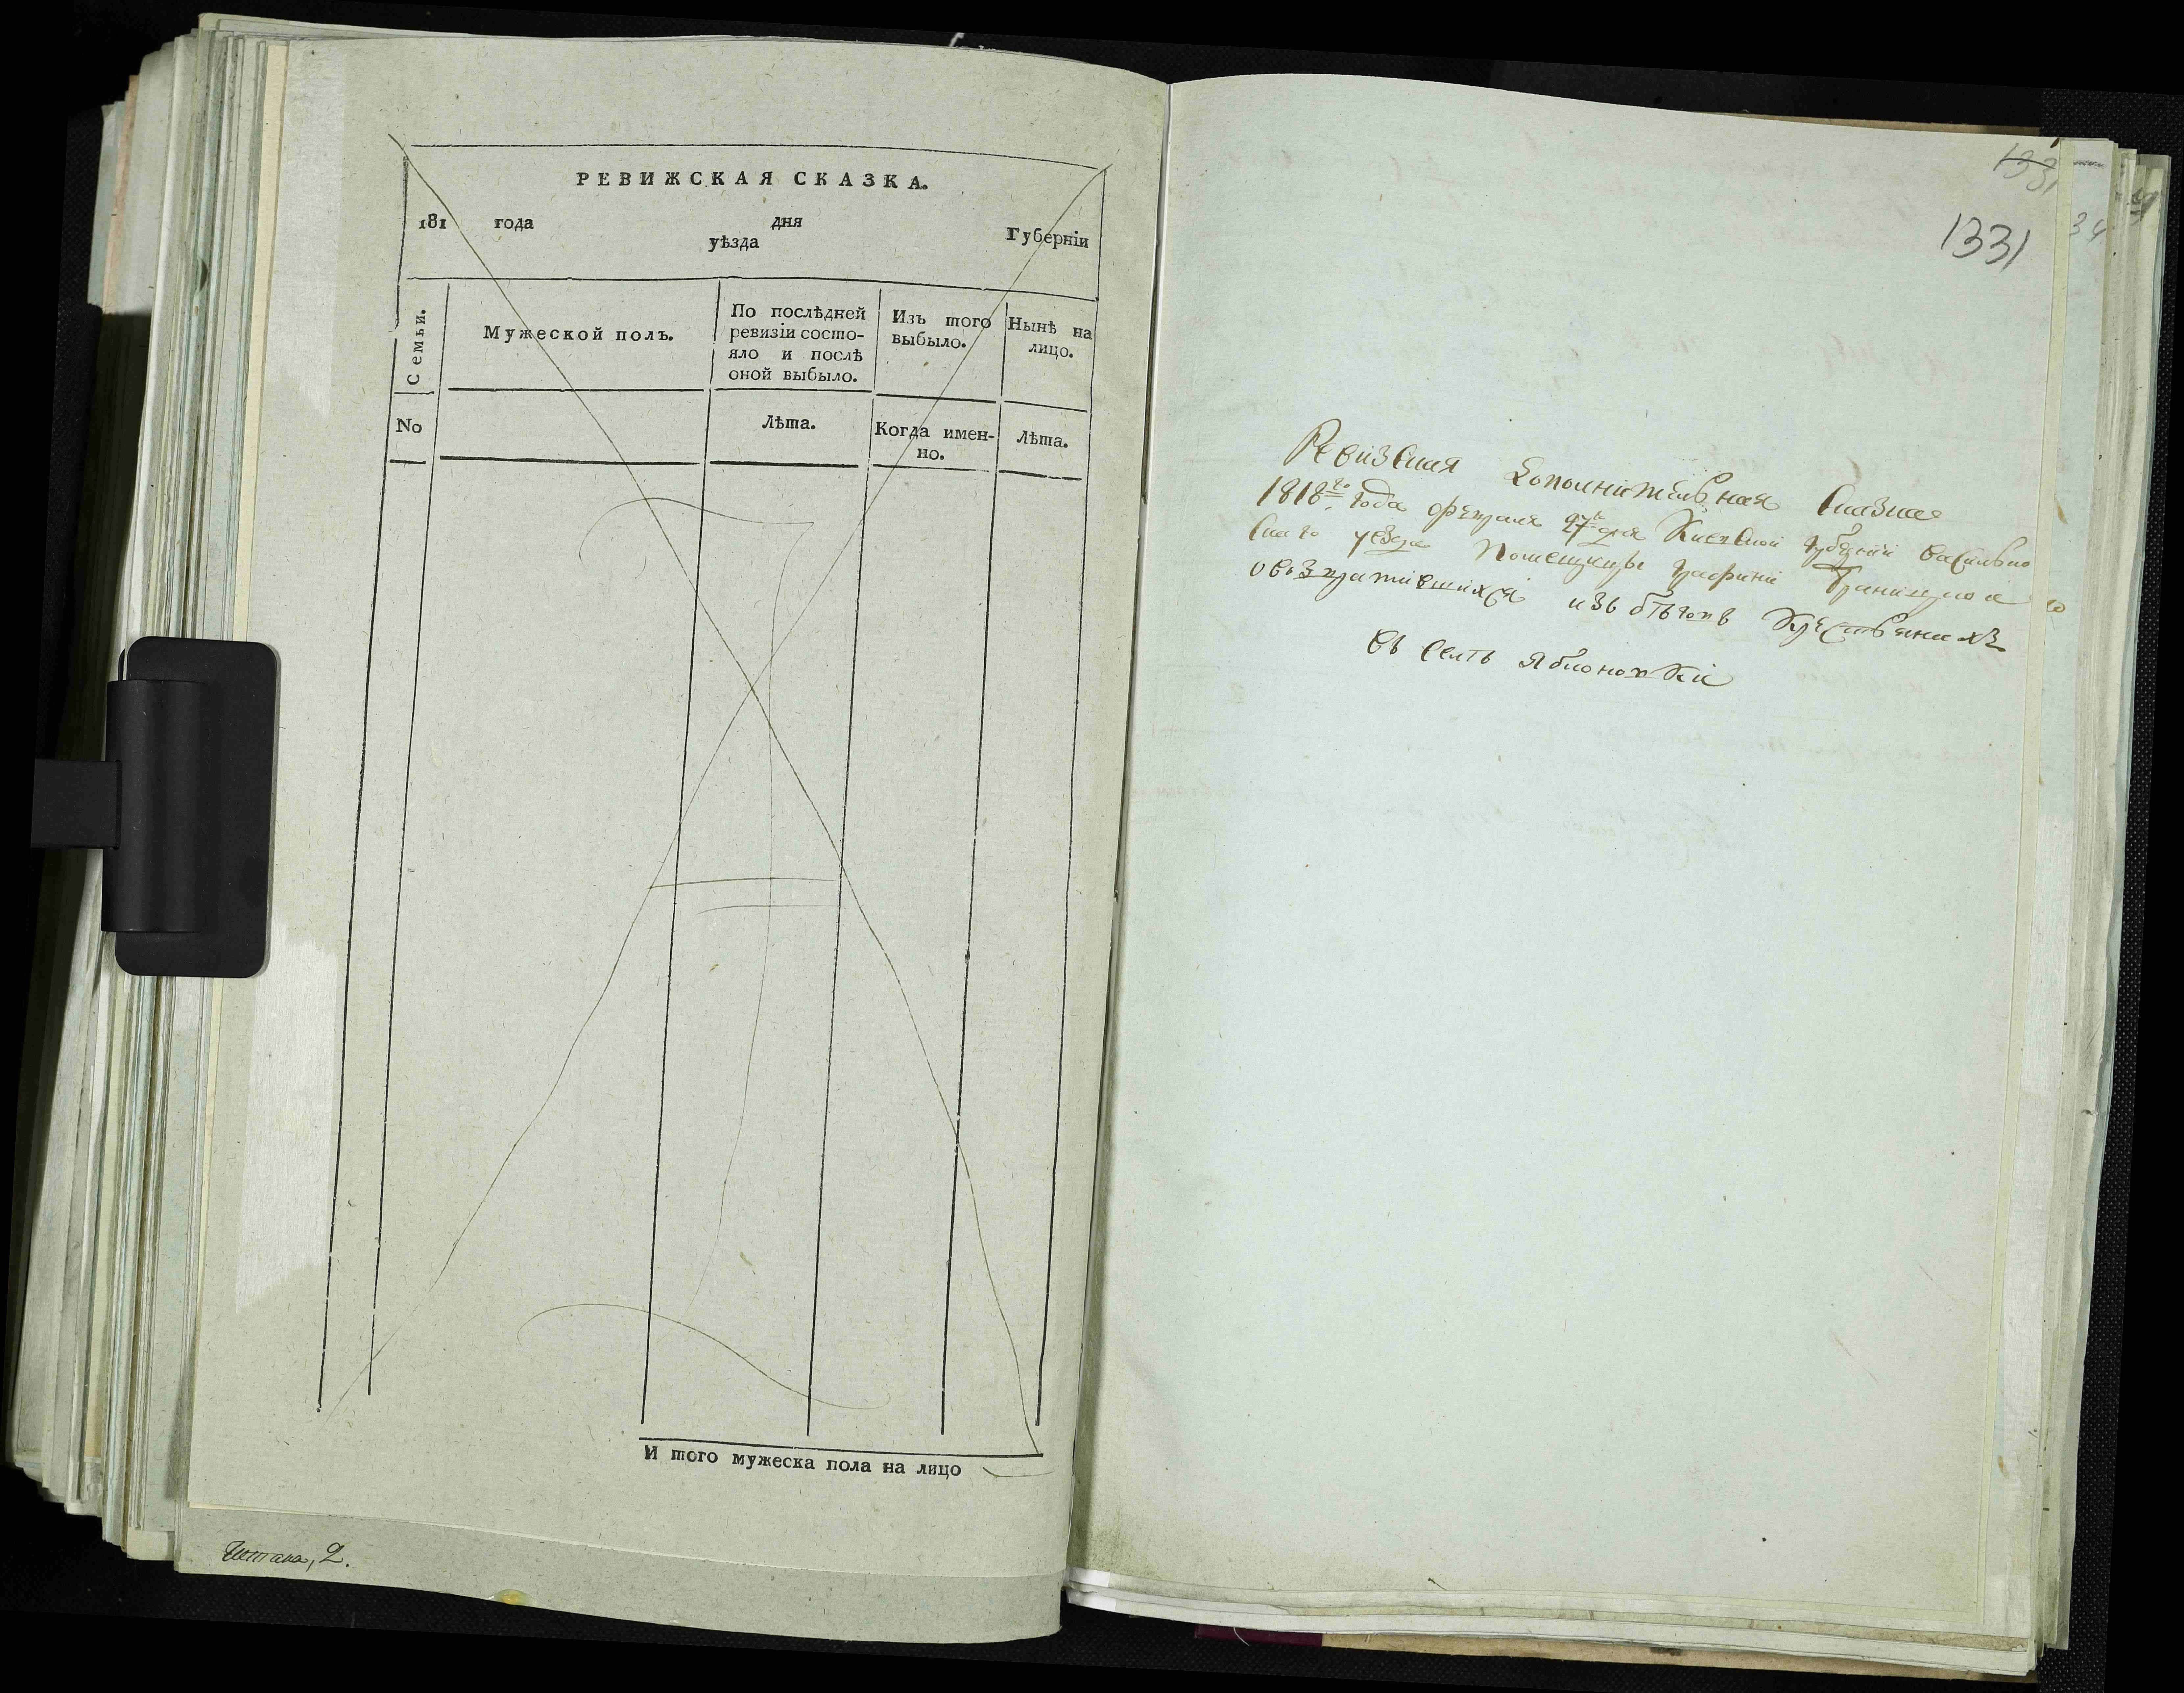 РЕВИЖСКАЯ СКАЗКА.
181 года дня Губерніи
уѣзда
Семьи.
Мужеской полъ.
По послѣдней
ревизіи состо-
яло и послѣ
оной выбыло.
Изъ того
выбыло.
Нынѣ на
лицо.
No
Лѣта.
Когда имен-
но.
Лѣта.
И того мужеска пола на лицо
2.
1331
1331
34
Ревизская дополнительная Сказка
1818го года февраля 27 дня Киевской губерніи василько
Скаго уезда Помещицы графини Браницкой
о возвратившихся изъ бѣговъ Крестьянахъ
въ селѣ Яблоновки